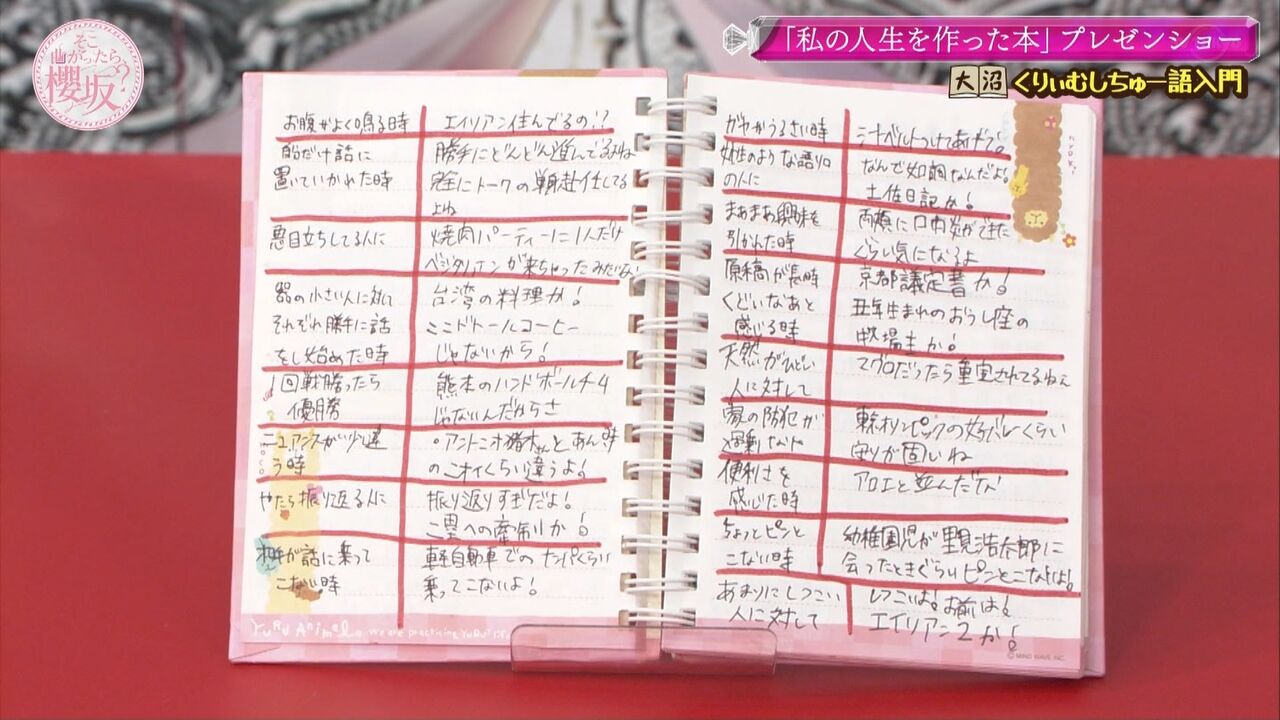 そこ
曲がったら、
櫻坂?
「私の人生を作った本」プレゼンショー
大沼 くりぃむしちゅー語入門
お腹がよく鳴る時 エイリアン住んでるの!?
自分だけ話に 勝手にどんどん進んでるみたいね
置いていかれた時 完全にトークの単身赴任してる
よね
悪目立ちしてる人に 焼肉パーティーに1人だけ
ベジタリアンが来ちゃったみたいな
器の小さい人に対して 台湾の料理か!
それぞれ勝手に話 ここドトールコーヒー
をし始めた時 じゃないから!
1回戦勝ったら 熊本のハンドボールチーム
優勝 じゃないんだからさ
ニュアンスが少し違 ・アントニオ猪木さんと あん時
う時 のニオイくらい違うよ!
やたら振り返る人に 振り返りすぎだよ!
二塁への牽制か!
相手が話に乗って 軽自動車でのナンパくらい
こない時 乗ってこないよ!
YURU Animal
ガヤがうるさい時 汁ベルトつけてあげて!
女性のような語り口 なんで女口調なんだよ!
の人に 土佐日記か!
まあまあ興味を 両頬に口内炎ができた
引かれた時 くらい気になるよ
原稿が長時 京都議定書か!
くどいなあと 丑年生まれのおうし座の
感じる時 牧場主か!
天然がひどい マグロだったら重宝されてるねぇ
人に対して
家の防犯が 東京オリンピックの女子バレーくらい
過剰な人 守りが固いね
便利さを アロエと並んだな
感じた時
ちょっとピンと 幼稚園児が里見浩太郎に
こない時 会ったときぐらいピンとこないよ!
あまりにしつこい しつこいよ!お前は!
人に対して エイリアン2か!
© MIND WAVE INC.